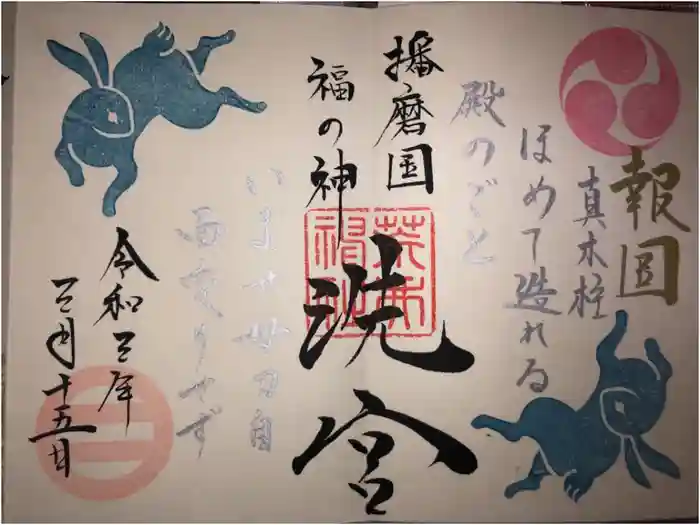 報国
真木柱
ほめて造れる
殿のごと
播磨国
福の神
洗宮
いませ母刀自
面変りせず
令和三年
三月十五日